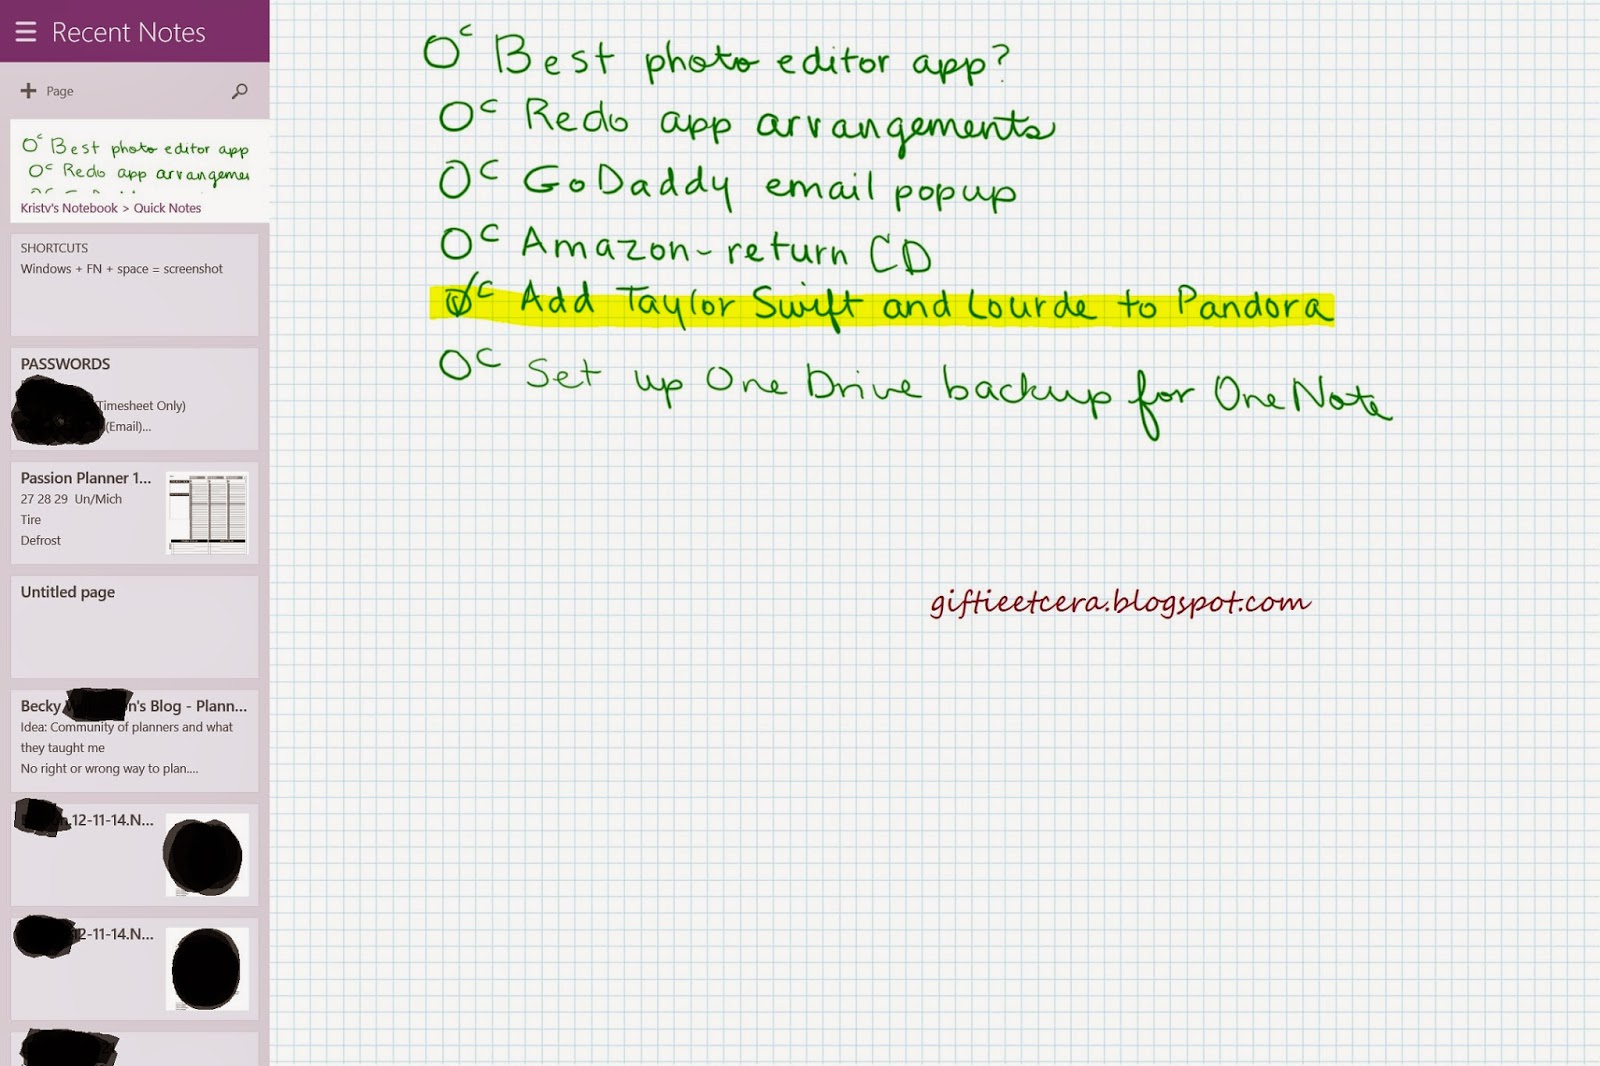 Recent Notes
Page
Best photo editor app
Redo app arrangemen
Kristy's Notebook > Quick Notes
SHORTCUTS
Windows + FN + space = screenshot
PASSWORDS
(Timesheet Only)
(Email)...
Passion Planner 1...
27 28 29 Un/Mich
Tire
Defrost
Untitled page
Becky n's Blog - Plann...
Idea: Community of planners and what
they taught me
No right or wrong way to plan....
12-11-14.N...
12-11-14.N...
OC Best photo editor app?
OC Redo app arrangements
OC GoDaddy email popup
OC Amazon-return CD
OC Add Taylor Swift and Lourde to Pandora
OC Set up One Drive backup for OneNote
giftieetcera.blogspot.com